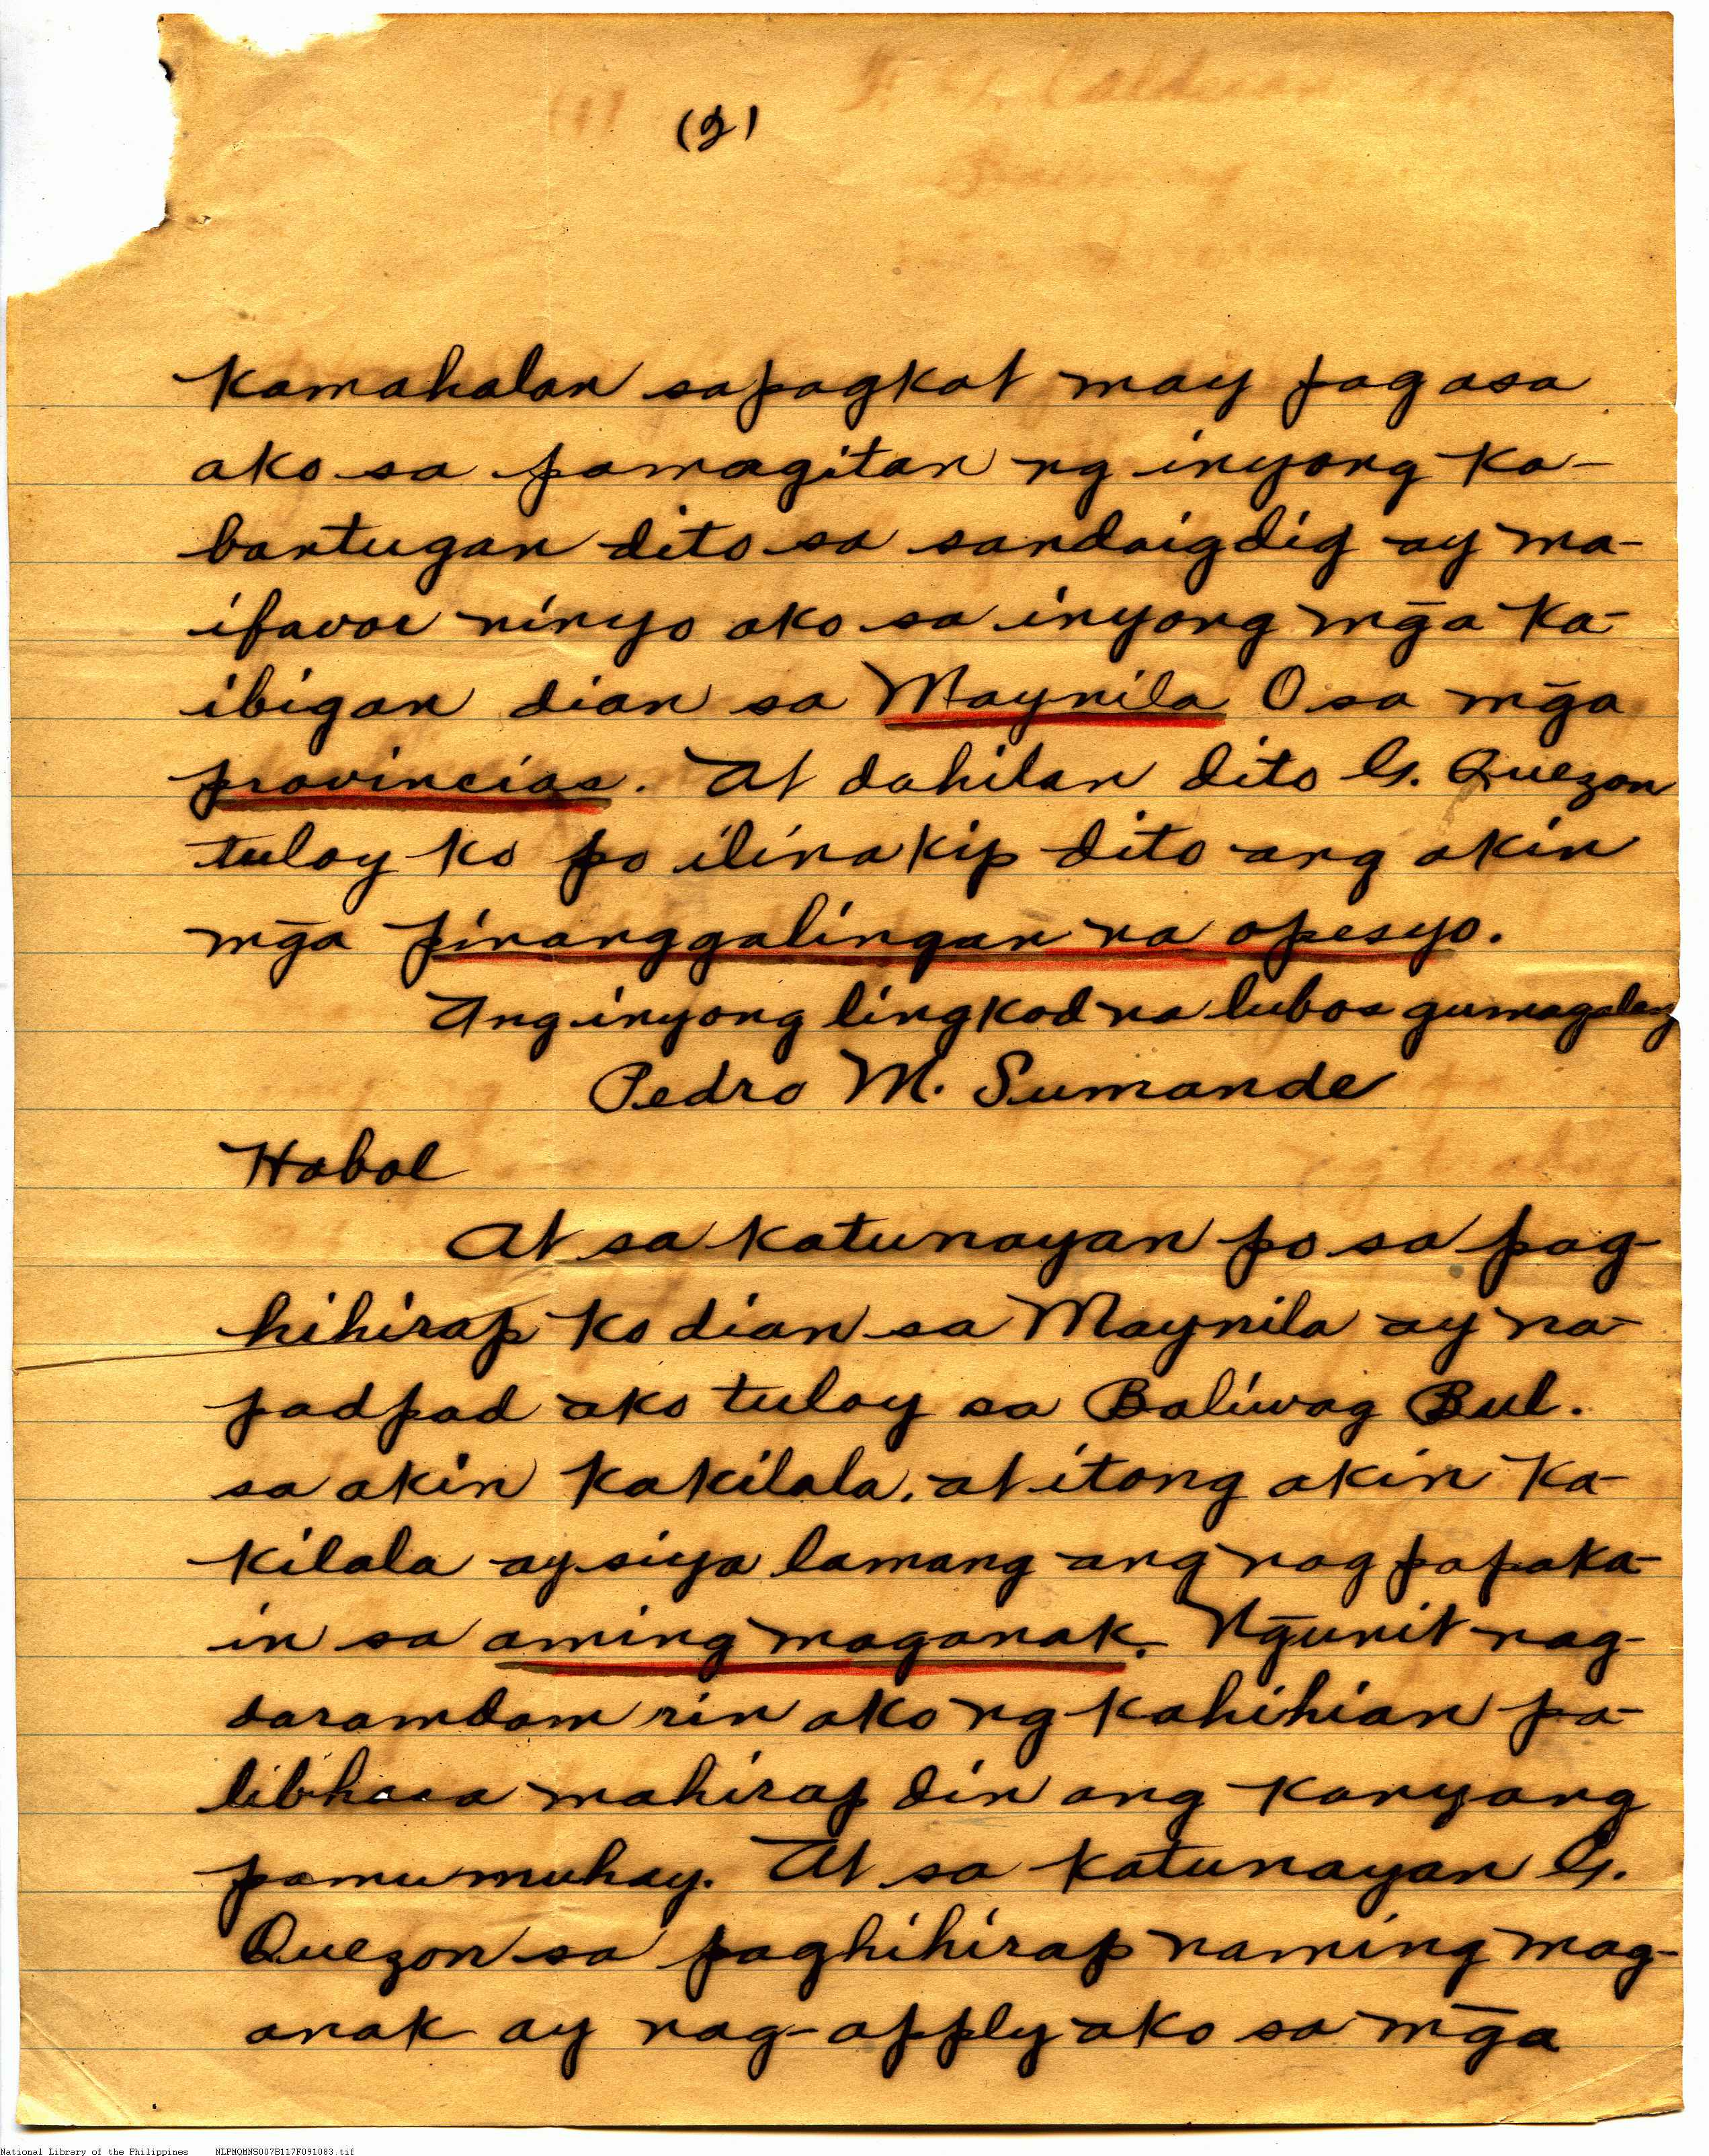 (2)
Kamahalan sapagkat may pag asa
ako sa pamagitan ng inyong ka-
bantugan dito sa sandaigdig ay ma-
ifavor ninyo ako sa inyong mg̃a ka-
ibigan dian sa Maynila O sa mg̃a
provincias. At dahilan dito G. Quezon
tuloy ko po ilinakip dito ang akin
mg̃a pinanggalingan na opesyo.
Ang inyong lingkod na lubos gumagalang
Pedro M. Sumande
Habol
At sa katunayan po sa pag-
hihirap ko dian sa Maynila ay na-
padpad ako tuloy sa Baliwag Bul.
sa akin kakilala. at itong akin ka-
kilala ay siya lamang ang nag papaka-
in sa aming maganak. Ng̃unit nag-
daramdam rin ako ng kahihian pa-
libhasa mahirap din ang kanyang
pamumuhay. At sa katunayan G.
Quezon sa paghihirap naming mag-
anak ay nag-apply ako sa mg̃a
National Library of the Philippines NLPMQMNS007B117F091083.tif